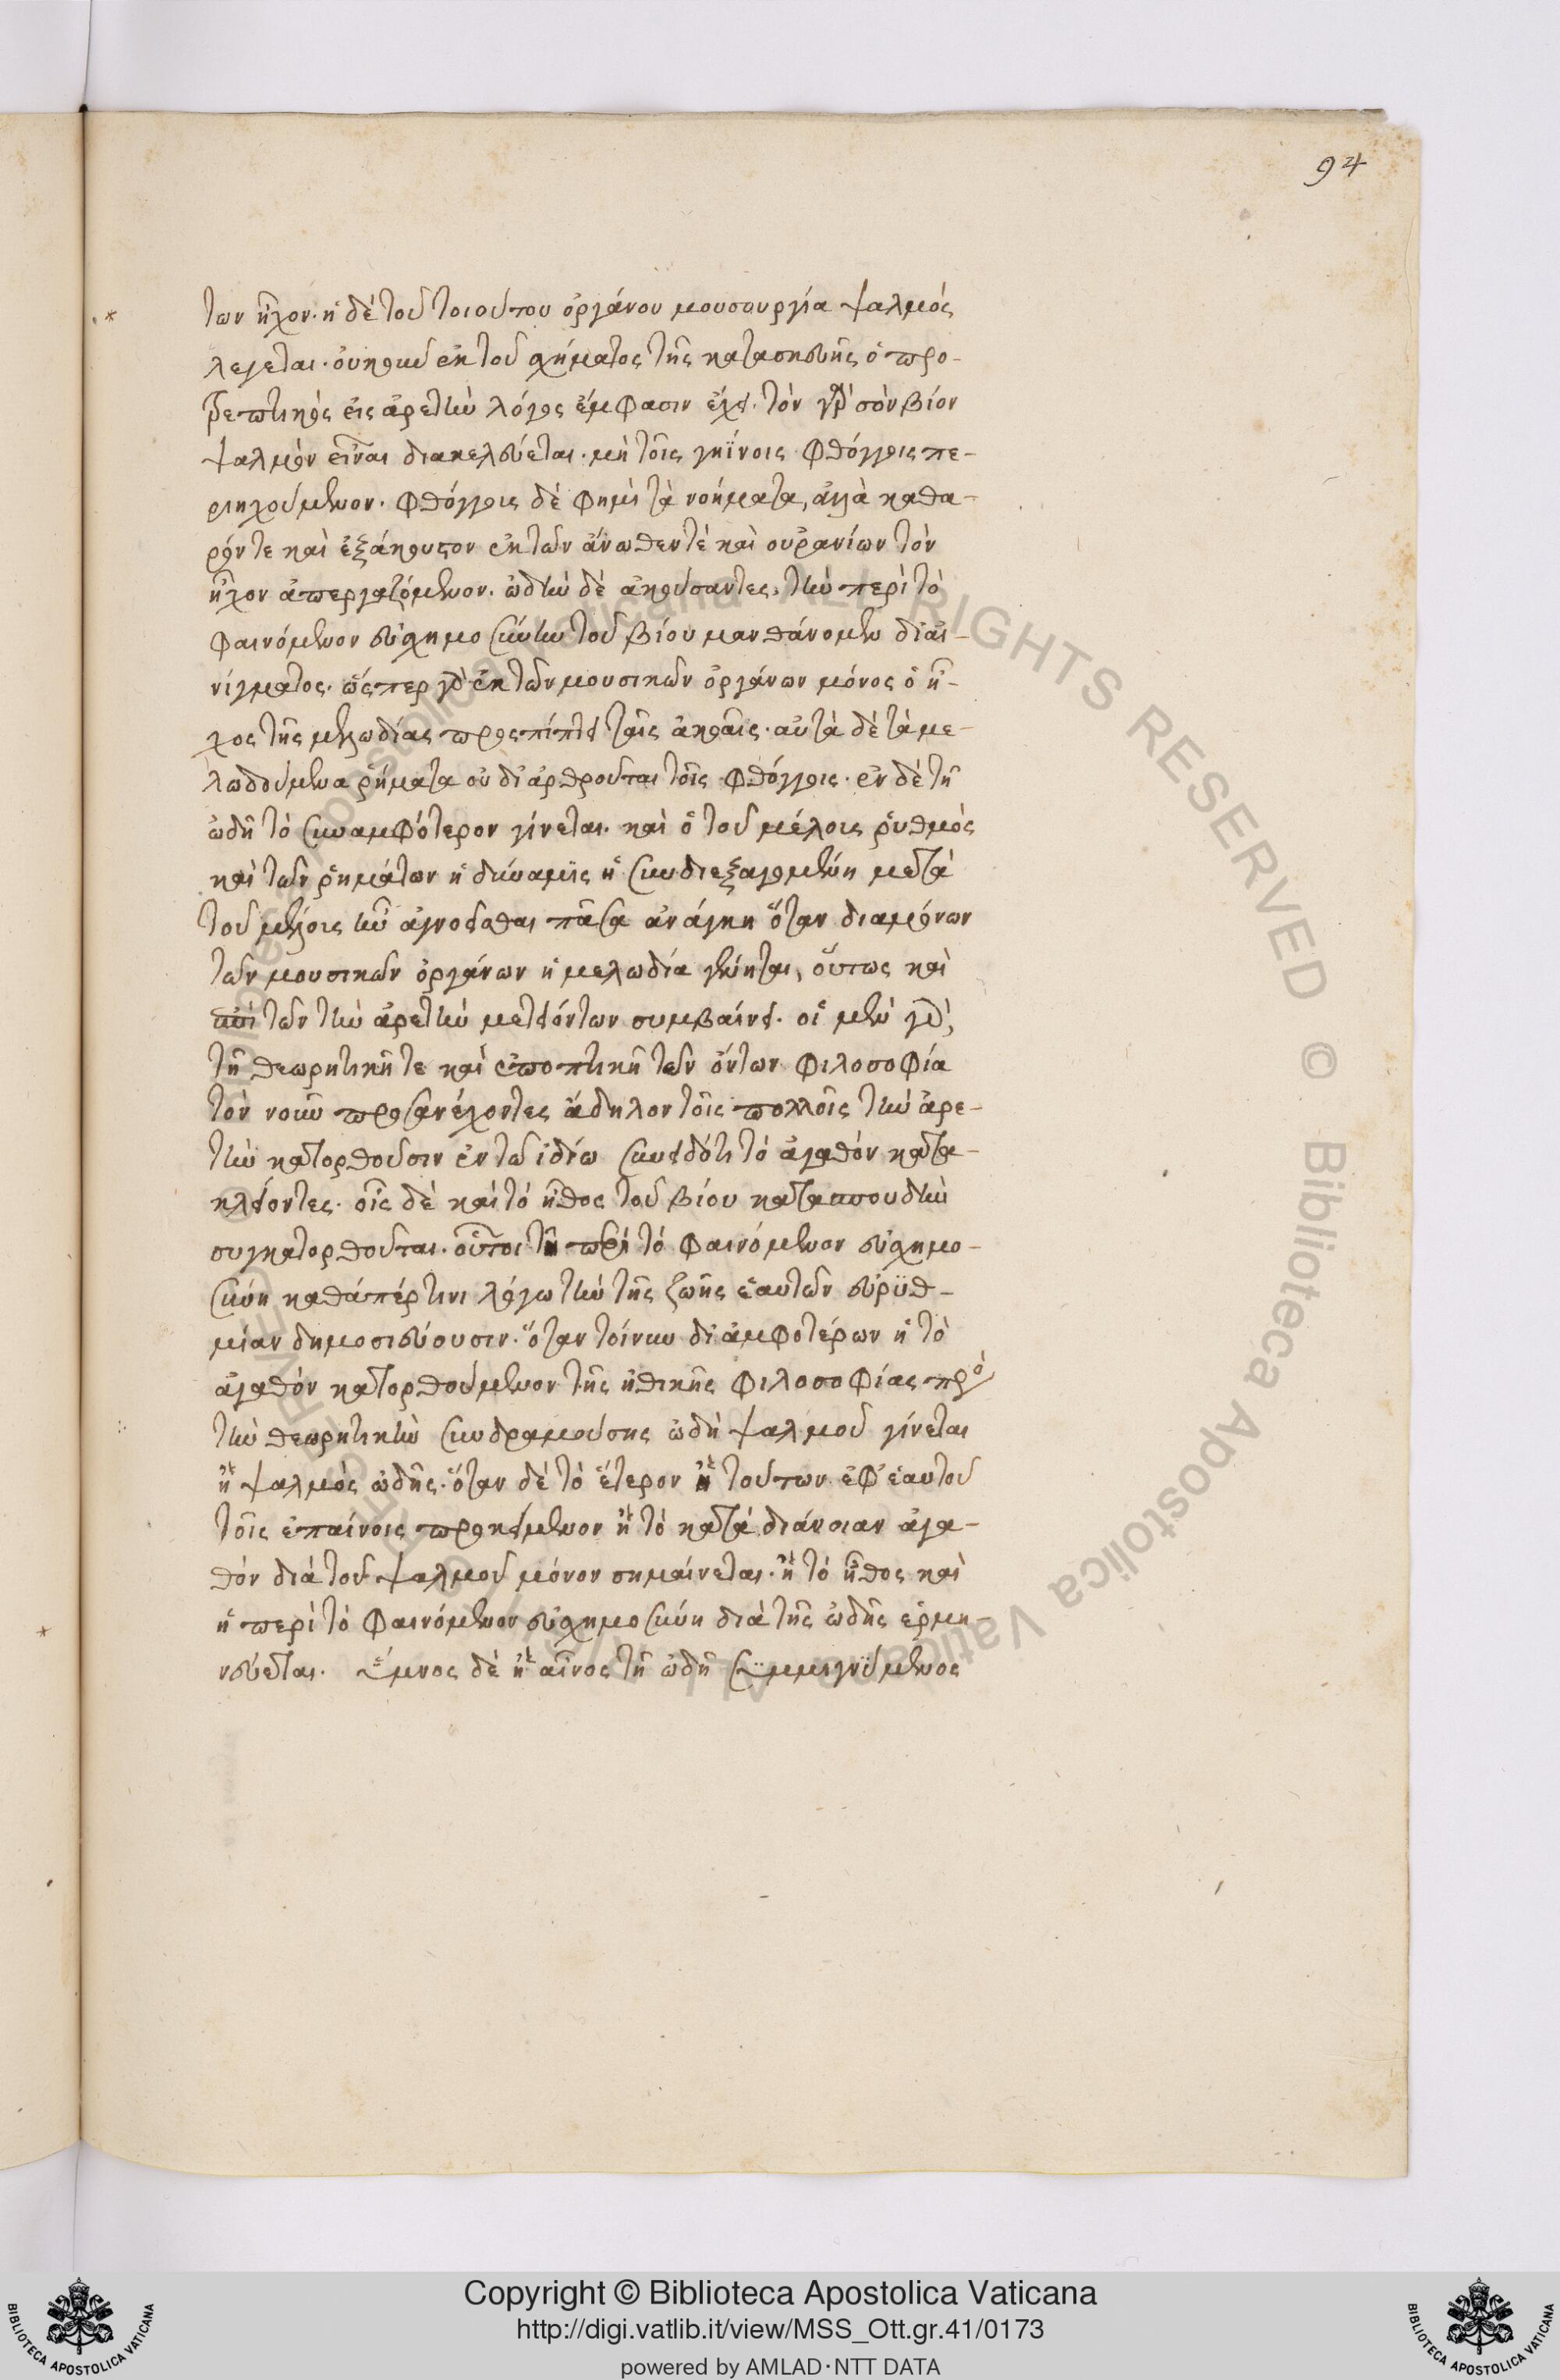 94
των ἦχον· ἡ δὲ τοῦ τοιούτου ὀργάνου μουσουργία ψαλμὸς
λέγεται· οὐκοῦν ἐκ τοῦ σχήματος τῆς κατασκευῆς ὁ προ-
τρεπτικὸς εἰς ἀρετὴν λόγος ἔμφασιν ἔχει· τὸν γὰρ σὸν βίον
ψαλμὸν εἶναι διακελεύεται· μὴ τοῖς γηΐνοις φθόγγοις πε-
ριηχούμενον· φθόγγοις δὲ φημὶ τὰ νοήματα, ἀλλὰ καθα-
ρόν τε καὶ ἐξάκουστον ἐκ τῶν ἄνωθεν τὲ καὶ οὐρανίων τὸν
ἦχον ἀπεργαζόμενον· ὠδὴν δὲ ἀκούσαντες, τὴν περὶ τὸ
φαινόμενον εὐσχημοσύνην τοῦ βίου μανθάνομεν δι' αἰ-
νίγματος· ὥσπερ γὰρ ἐκ τῶν μουσικῶν ὀργάνων μόνος ὁ ἦ-
χος τῆς μελωδίας προσπίπτει ταῖς ἀκοαῖς· αὐτὰ δὲ τὰ με-
λωδούμενα ῥήματα οὐ διαρθροῦται τοῖς φθόγγοις· ἐν δὲ τῇ
ὠδῇ τὸ συναμφότερον γίνεται· καὶ ὁ τοῦ μέλους ῥυθμὸς
καὶ τῶν ῥημάτων ἡ δύναμις ἡ συνδιεξαγομένη μετὰ
τοῦ μέλους ἣν ἀγνοεῖσθαι πᾶσα ἀνάγκη ὅταν διὰ μόνων
τῶν μουσικῶν ὀργάνων ἡ μελωδία γένηται, οὕτως καὶ
ἐπὶ τῶν τὴν ἀρετὴν μετιόντων συμβαίνει· οἱ μὲν γὰρ,
τῇ θεωρητικῇ τε καὶ ἐποπτικῇ τῶν ὄντων φιλοσοφία
τὸν νοῦν προσανέχοντες ἄδηλον τοῖς πολλοῖς τὴν ἀρε-
τὴν κατορθοῦσιν ἐν τῶ ἰδίω συνειδότι τὸ ἀγαθὸν κατα-
κλείοντες· οἷς δὲ καὶ τὸ ἦθος τοῦ βίου κατὰ σπουδὴν
συγκατορθοῦται· οὗτοι τῇ περὶ τὸ φαινόμενον εὐσχημο-
σύνη καθάπέρ τινι λόγω τὴν τῆς ζωῆς ἑαυτῶν εὐρυθ-
μίαν δημοσιεύουσιν· ὅταν τοίνυν δι' ἀμφοτέρων ᾖ τὸ
ἀγαθὸν κατορθούμενον τῆς ἠθικῆς φιλοσοφίας πρὸς
τὴν θεωρητικὴν συνδραμούσης ὠδὴ ψαλμοῦ γίνεται
ἢ ψαλμὸς ὠδῆς· ὅταν δὲ τὸ ἕτερον ἢ τούτων ἐφ' ἑαυτοῦ
τοῖς ἐπαίνοις προκείμενον ἢ τὸ κατὰ διάνοιαν ἀγα-
θὸν διὰ τοῦ ψαλμοῦ μόνον σημαίνεται· ἢ τὸ ἦθος καὶ
ἡ περὶ τὸ φαινόμενον εὐσχημοσύνη διὰ τῆς ὠδῆς ἑρμη-
νεύεται· ὕμνος δὲ ἢ αἶνος τῇ ὠδῇ συμμιγνύμενος
Copyright © Biblioteca Apostolica Vaticana
http://digi.vatlib.it/view/MSS_Ott.gr.41/0173
powered by AMLAD·NTT DATA